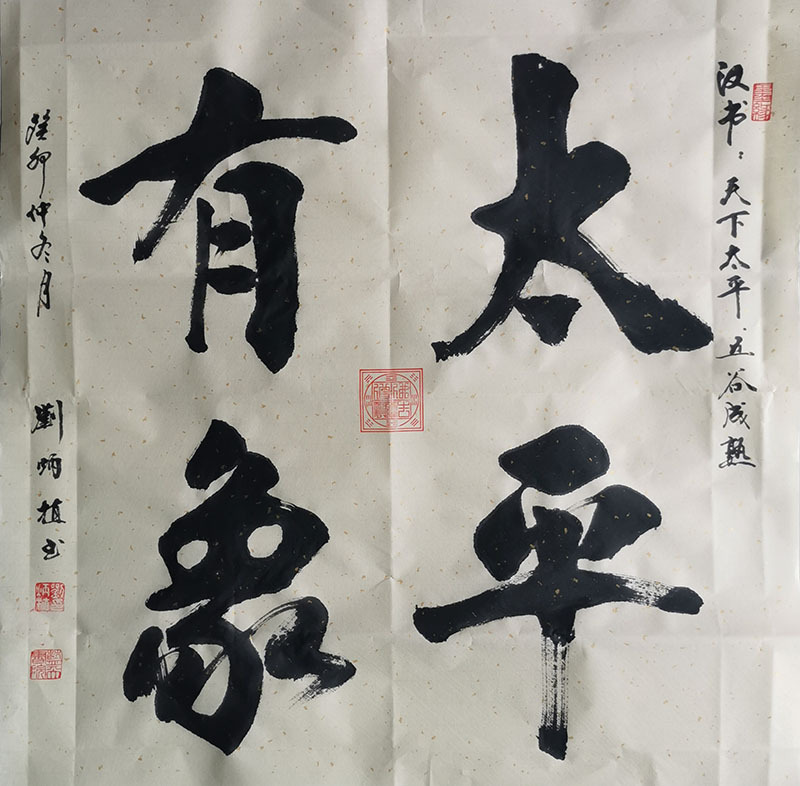 汉书：天下太平、五谷成熟
太平
有象
癸卯仲冬月
劉炳植书